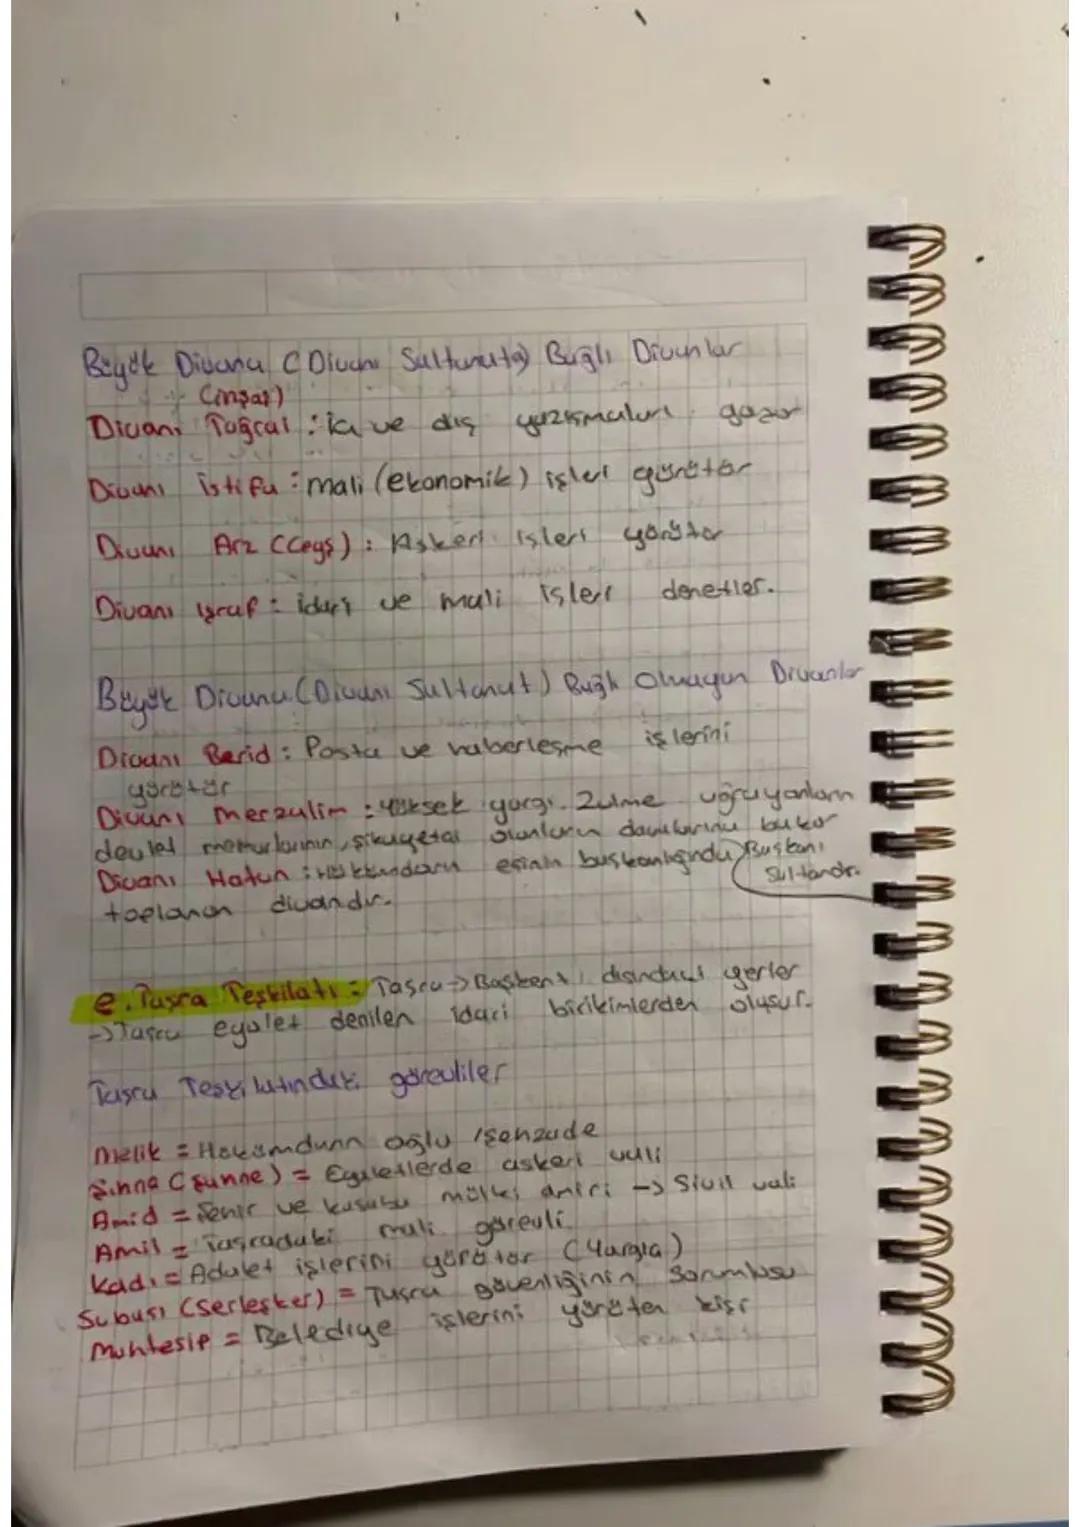 Büyük Divana (Divanı Saltanata) Bağlı Divanlar
(inşat)
Divanı Tuğrai : iç ve dış yazışmaları yazar
Divanı istifa : mali (ekonomik) işleri yürütür
Divanı Arz (Ceyş) : Askeri işleri yürütür
Divanı işraf : idari ve mali işleri denetler.
Büyük Divana (Divanı Saltanat) Bağlı Olmayan Divanlar
Divanı Berid : Posta ve haberleşme işlerini
yürütür
Divanı merzalim : yüksek yargı. Zulme uğrayanların
devlet memurlarının, şikayetçi olanların davalarına bakar
Divanı Hatun : Hükümdarın eşinin başkanlığında Başkanı
Sultandır.
toplanan divandır.
e. Taşra Teşkilatı : Taşra → Başkent dışındaki yerler
→ Taşra eyalet denilen idari birikimlerden oluşur.
Taşra Teşkilatındaki görevliler
melik = Hükümdarın oğlu / şehzade
Şıhne (şahne) = Eyaletlerde askeri vali
Amid = Şehir ve kasaba mülki amiri → Sivil vali
Amil = Taşradaki mali görevli
Kadı = Adalet işlerini yürütür (Yargıa)
Subaşı (Serleşker) = Taşra güvenliğinin Sorumlusu
Muhtesip = Belediye işlerini yürüten kişi